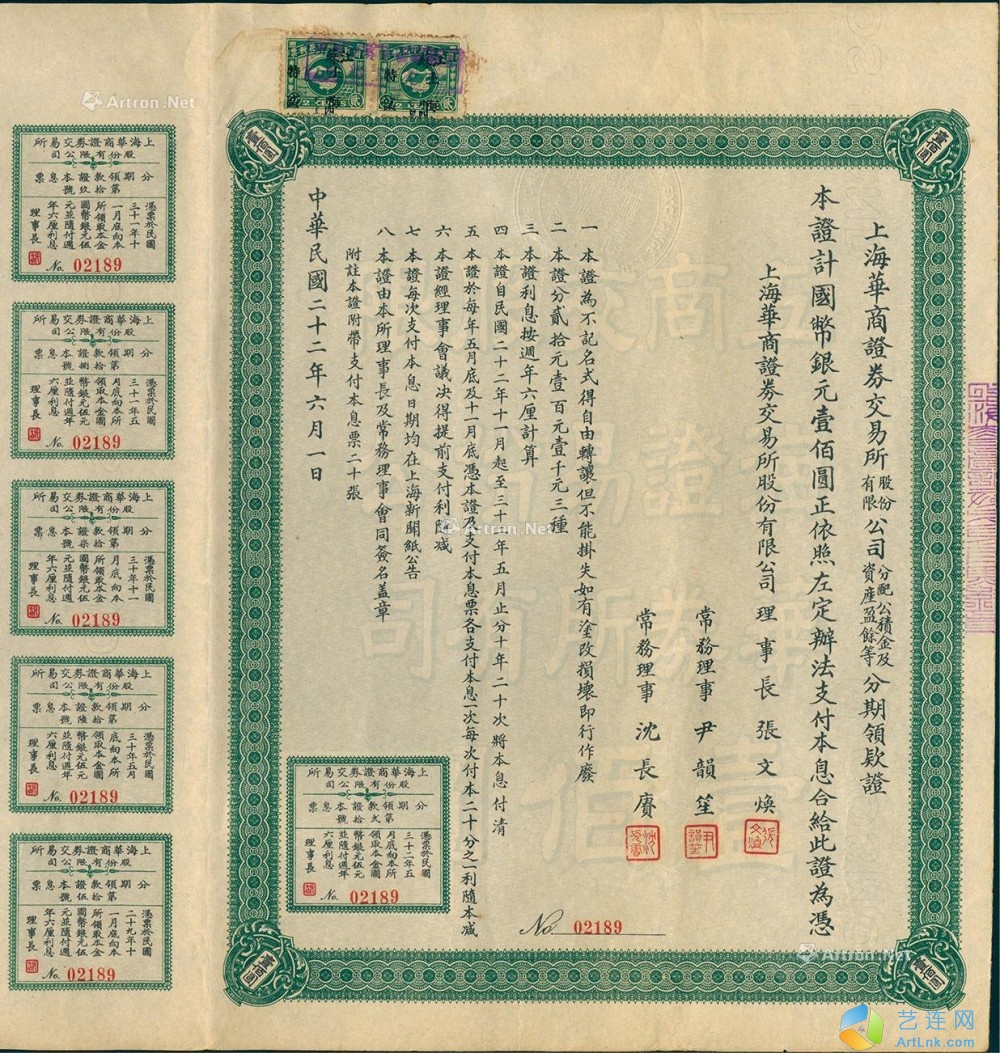 上海華商證券交易所股份有限公司分配公積金及資產盈餘等分期領款證
本證計國幣銀元壹佰圓正依照左定辦法支付本息合給此證為憑
上海華商證券交易所股份有限公司理事長張文煥
常務理事尹韻笙
常務理事沈長賡
一 本證為不記名式得自由轉讓但不能掛失如有塗改損壞即行作廢
二 本證分貳拾元壹百元壹千元三種
三 本證利息按週年六厘計算
四 本證自民國二十二年十一月起至三十二年五月止分十年二十次將本息付清
五 本證於每年五月底及十一月底憑本證及支付本息票各支付本息一次每次付本二十分之一利隨本減
六 本證經理事會議決得提前支付利隨減
七 本證每次支付本息日期均在上海新聞紙公告
八 本證由本所理事長及常務理事會同簽名蓋章
附註本證附帶支付本息票二十張
中華民國二十二年六月一日
No. 02189
壹百圓
壹百圓
壹百圓
壹百圓
上海華商證券交易所
股份有限公司
分期領款證本息票
第拾玖號
憑票於民國
三十一年十
一月底向本
所領取本金
國幣銀元伍
元並隨付週
年六厘利息
理事長
No. 02189
上海華商證券交易所
股份有限公司
分期領款證本息票
第拾捌號
憑票於民國
三十一年五
月底向本所
領取本金國
幣銀元伍元
並隨付週年
六厘利息
理事長
No. 02189
上海華商證券交易所
股份有限公司
分期領款證本息票
第拾柒號
憑票於民國
三十年十一
月底向本
所領取本金
國幣銀元伍
元並隨付週
年六厘利息
理事長
No. 02189
上海華商證券交易所
股份有限公司
分期領款證本息票
第拾陸號
憑票於民國
三十年五月
底向本所
領取本金國
幣銀元伍元
並隨付週年
六厘利息
理事長
No. 02189
上海華商證券交易所
股份有限公司
分期領款證本息票
第拾伍號
憑票於民國
二十九年十
一月底向本
所領取本金
國幣銀元伍
元並隨付週
年六厘利息
理事長
No. 02189
上海華商證券交易所
股份有限公司
分期領款證本息票
憑票於民國
三十二年五
月底向本所
領取本金國
幣銀元伍元
並隨付週年
六厘利息
理事長
No. 02189
Artron.Net
Artron.Net
Artron.Net
Artron.Net
艺连网
ArtLnk.com